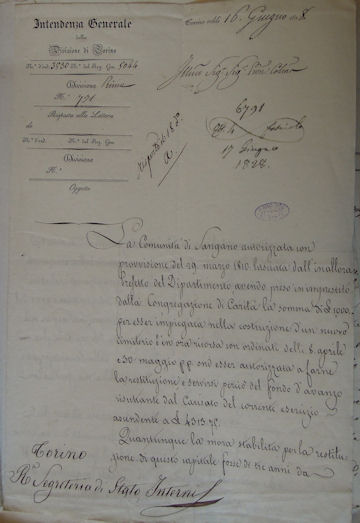 Intendenza Generale
della
Divisione di Torino
N.° d'ord. 3930 N.° del Reg. Gen. 5044
Divisione Prima
N.° 791
Risposta alla Lettera
de
N.° d'ord. N.° del Reg. Gen.
Divisione
N.°
Oggetto
Torino addì 16. Giugno 18
6791
17 Giugno
1828
La Comunità di Sangano autorizzata con
provvisione del 29. marzo 1810. lasciata dall'inallora
Prefetto del Dipartimento avendo preso in imprestito
dalla Congregazione di Carità la somma di L. 1000.
per esser impiegata nella costruzione d'un nuovo
Cimiterio l'è ora ricorsa con ordinati delli 8. aprile
e 30. maggio p.p. ond'esser autorizzata a farne
la restituzione e servirsi perciò del fondo d'avanzo
risultante dal Caricato del corrente esercizio
ascendente a L. 4313.
Quantunque la mora stabilita per la restitu-
zione di questo capitale fosse di tre anni da
Torino
R.a Segreteria di Stato Interni